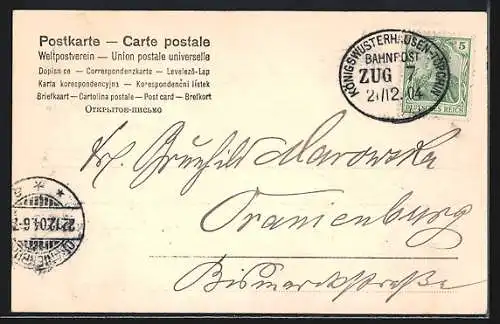 Postkarte — Carte postale
Weltpostverein — Union postale universelle
Dopisnice — Correspondenzkarte — Levelező-Lap
Karta korespondencyjna — Korespondenční lístek
Briefkaart — Cartolina postale — Post card — Brefkort
Открытое-письмо
KÖNIGSWUSTERHAUSEN-
BAHNPOST
ZUG 7
21/12.04
5
DEUTSCHES REICH
Marowska
Oranienburg
Bismarckstraße
22.12.04.6-7